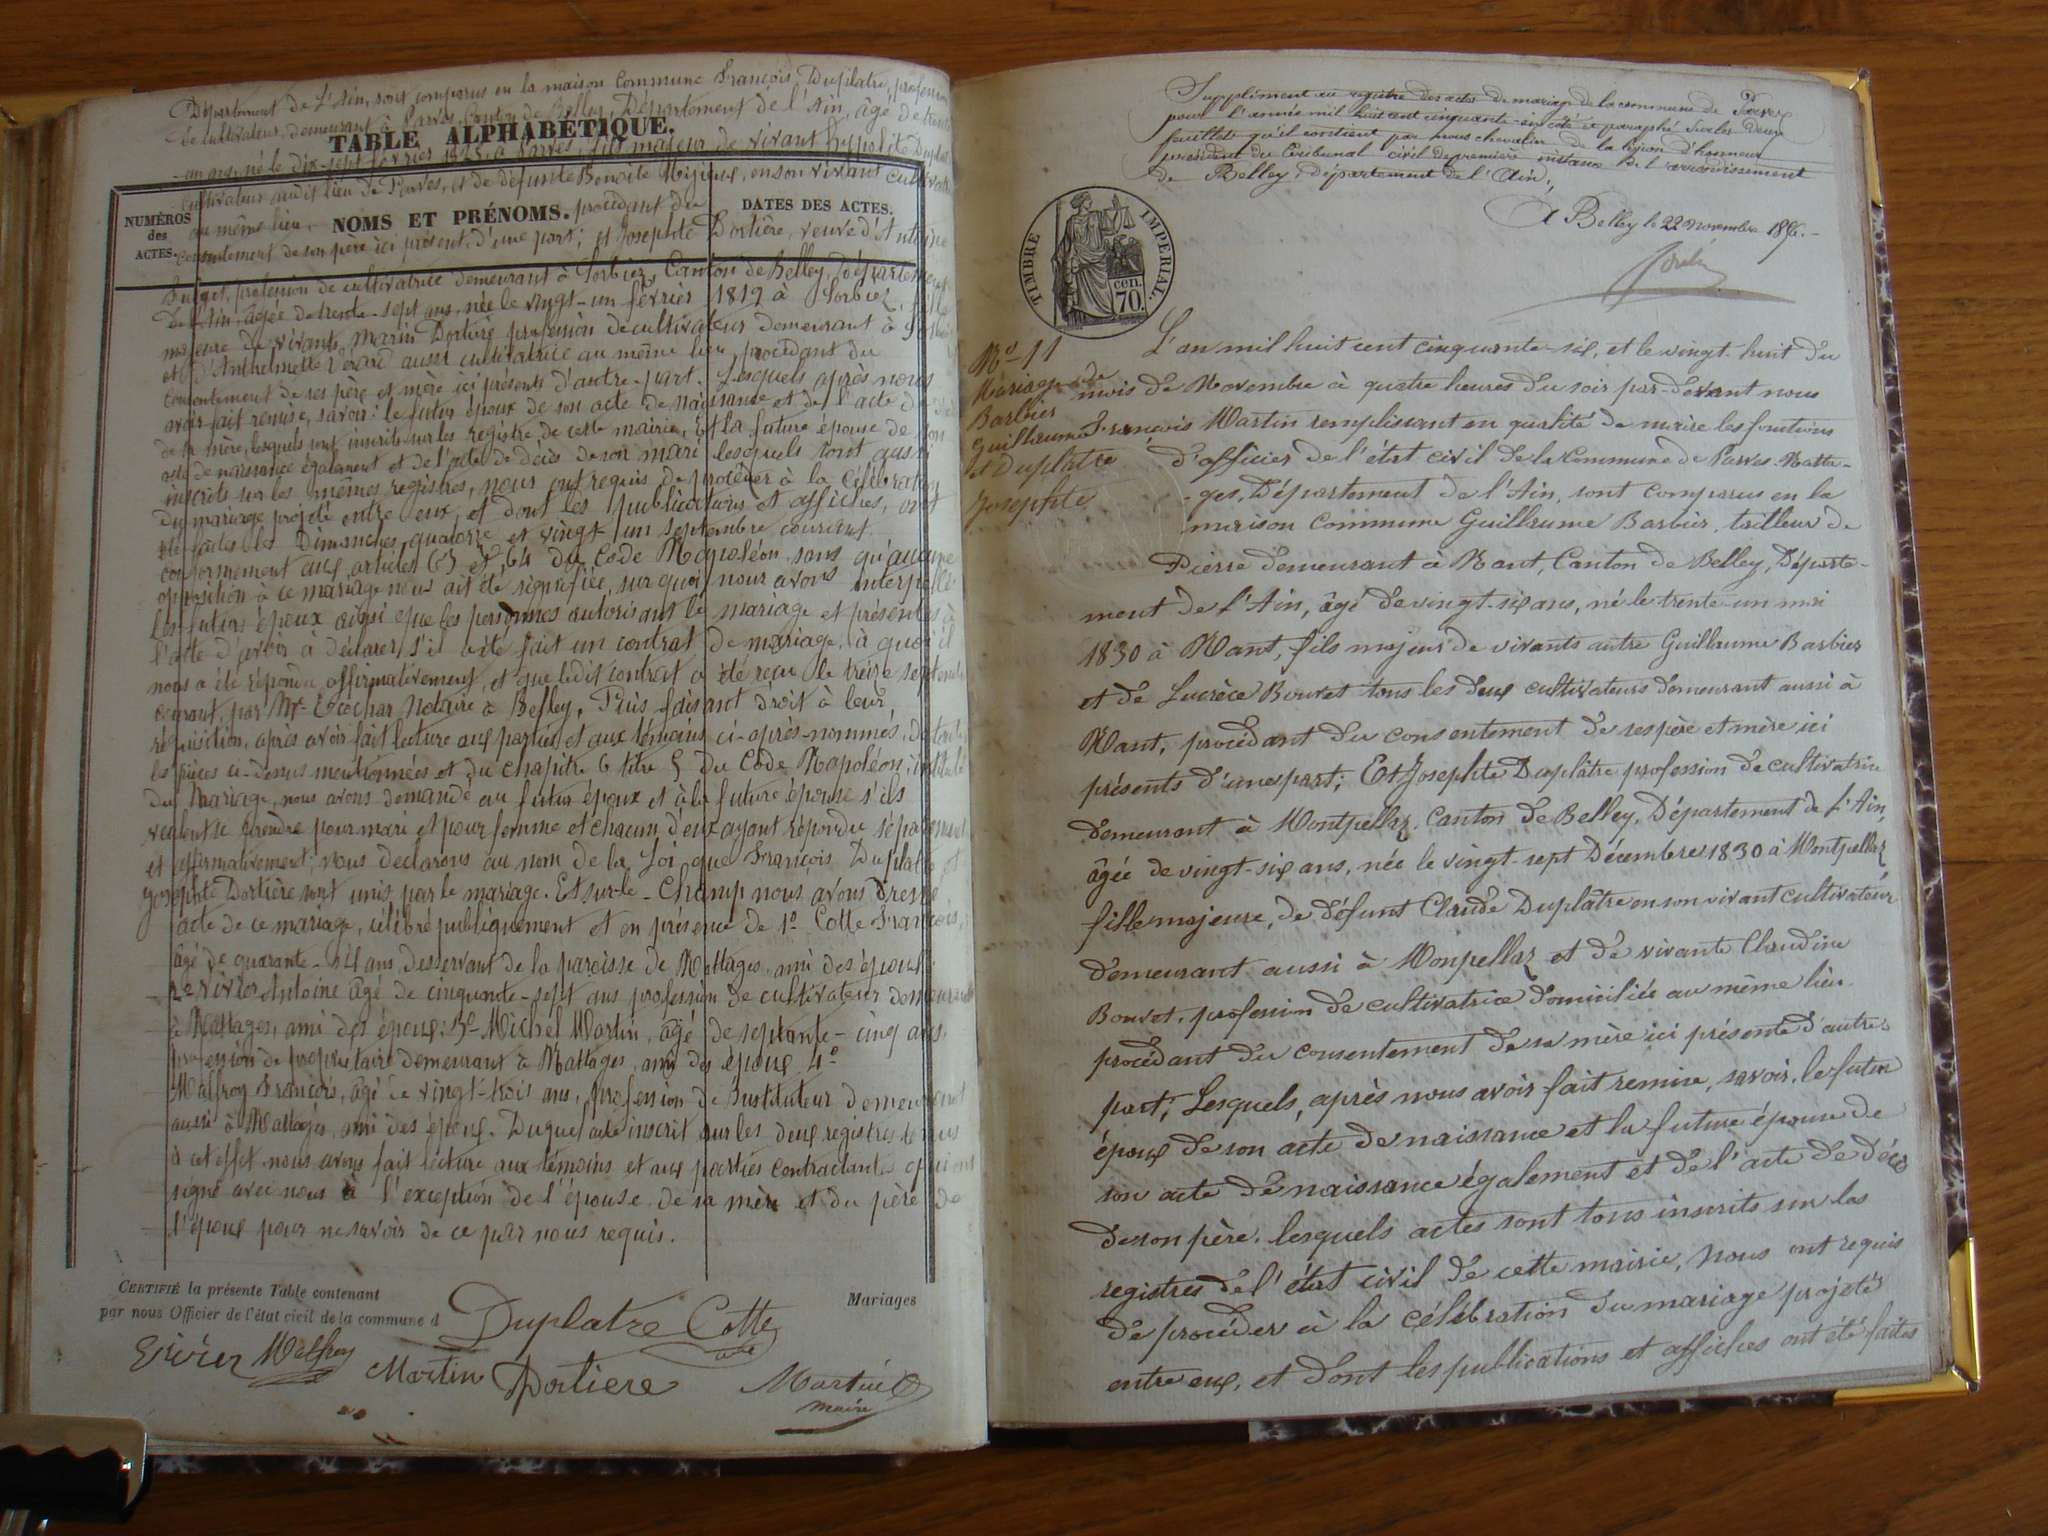 Département de l'Ain, sont comparus en la maison Commune François Duplatre, profession
de cultivateur, demeurant à Parves, Canton de Belley, Département de l'Ain, âgé de trente
TABLE ALPHABÉTIQUE.
un ans, né le dix-sept février 1825, à Parves, fils majeur de vivant Hyppolite Duplatre
cultivateur audit lieu de Parves, et de défunte Benoite en son vivant cultivatrice
NUMÉROS des ACTES.
NOMS ET PRÉNOMS.
DATES DES ACTES.
au même lieu, procédant du
consentement de son père ici présent, d'une part; et Josephte Dortière, veuve d'Antoine
profession de cultivatrice demeurant à Sorbiez, Canton de Belley, Département
de l'Ain, âgée de trente-sept ans, née le vingt-un février 1819 à Sorbiez, fille
majeure de vivants Marin Dortière profession de cultivateur demeurant à Sorbiez
et d'Anthelmette aussi cultivatrice au même lieu, procédant du
consentement de ses père et mère ici présents d'autre part. Lesquels après nous
avoir fait remise, savoir: le futur époux de son acte de naissance et de l'acte de décès
de sa mère, lesquels sont inscrits sur les registre de cette mairie, Et la future épouse de son
acte de naissance également et de l'acte de décès de son mari lesquels sont aussi
inscrits sur les mêmes registres, nous ont requis de procéder à la célébration
du mariage projeté entre eux, et dont les publications et affiches, ont
été faites les Dimanches quatorze et vingt-un septembre courant.
conformément aux articles 63 et 64 du Code Napoléon, sans qu'aucune
opposition à ce mariage nous ait été signifiée, sur quoi nous avons interpellé
les futurs époux ainsi que les personnes autorisant le mariage et présentes à
l'acte d'avoir à déclarer s'il a été fait un contrat de mariage, à quoi il
nous a été répondu affirmativement, et que ledit contrat a été reçu le treize septembre
courant, par Mr. notaire à Belley, Puis faisant droit à leur
réquisition, après avoir fait lecture aux parties et aux témoins ci-après-nommés, de toutes
les pièces ci-dessus mentionnées et du chapitre 6 titre 5 du Code Napoléon, intitulé
du Mariage, nous avons demandé au futur époux et à la future épouse s'ils
veulent se prendre pour mari et pour femme et chacun d'eux ayant répondu séparément
et affirmativement; nous déclarons au nom de la Loi que François Duplatre et
Josephte Dortière sont unis par le mariage. Et sur-le-Champ nous avons dressé
acte de ce mariage, célébré publiquement et en présence de 1º Cotte François,
âgé de quarante-14 ans desservant de la paroisse de Nattages, ami des époux
2º Vivier Antoine âgé de cinquante-sept ans profession de cultivateur demeurant
à Nattages, ami des époux; 3º Michel Martin, âgé de septante-cinq ans,
profession de propriétaire demeurant à Nattages, ami des époux 4º
Malfroy François, âgé de vingt-trois ans, profession de Instituteur demeurant
aussi à Nattages, ami des époux. Duquel acte inscrit sur les deux registres tenus
à cet effet nous avons fait lecture aux témoins et aux parties contractantes qui ont
signé avec nous à l'exception de l'épouse, de sa mère et du père de
l'époux pour ne savoir de ce par nous requis.
CERTIFIÉ la présente Table contenant
par nous Officier de l'état civil de la commune d
Mariages
Duplatre Cotte
Vivier Malfroy
Martin Dortiere
Martin
maire
Supplément au registre des actes de mariage de la commune de Parves
pour l'année mil huit cent cinquante-six coté et paraphé sur les deux
feuillets qu'il contient par nous chevalier de la légion d'honneur
président du Tribunal civil de première instance de l'arrondissement
de Belley, Département de l'Ain;
A Belley le 22 novembre 1856.
TIMBRE IMPERIAL.
CEN. 70
Nº 11
Mariage de
Barbier
Guillaume
et Duplâtre
Josephte
L'an mil huit cent cinquante-six, et le vingt-huit du
mois de Novembre à quatre heures du soir par-devant nous
François Martin remplissant en qualité de maire les fonctions
d'officier de l'état civil de la Commune de Parves-Natta-
-ges, Département de l'Ain, sont comparus en la
maison Commune Guillaume Barbier, tailleur de
Pierre demeurant à Nant, Canton de Belley, Départe-
ment de l'Ain, âgé de vingt-six ans, né le trente-un mai
1830 à Nant, fils majeur de vivants autre Guillaume Barbier
et de Lucrèce Bouvet tous les deux cultivateurs demeurant aussi à
Nant, procédant du consentement de ses père et mère ici
présents d'une part; Et Josephte Duplâtre profession de cultivatrice
demeurant à Montpellaz, Canton de Belley, Département de l'Ain,
âgée de vingt-six ans, née le vingt-sept Décembre 1830 à Montpellaz
fille majeure, de défunt Claude Duplâtre en son vivant cultivateur
demeurant aussi à Monpellaz et de vivante Claudine
Bouvet, profession de cultivatrice domiciliée au même lieu.
procédant du consentement de sa mère ici présente d'autre
part; Lesquels, après nous avoir fait remise, savoir, le futur
époux de son acte de naissance et la future épouse de
son acte de naissance également et de l'acte de décès
de son père, lesquels actes sont tous inscrits sur les
registres de l'état civil de cette mairie, nous ont requis
de procéder à la célébration du mariage projeté
entre eux, et dont les publications et affiches ont été faites